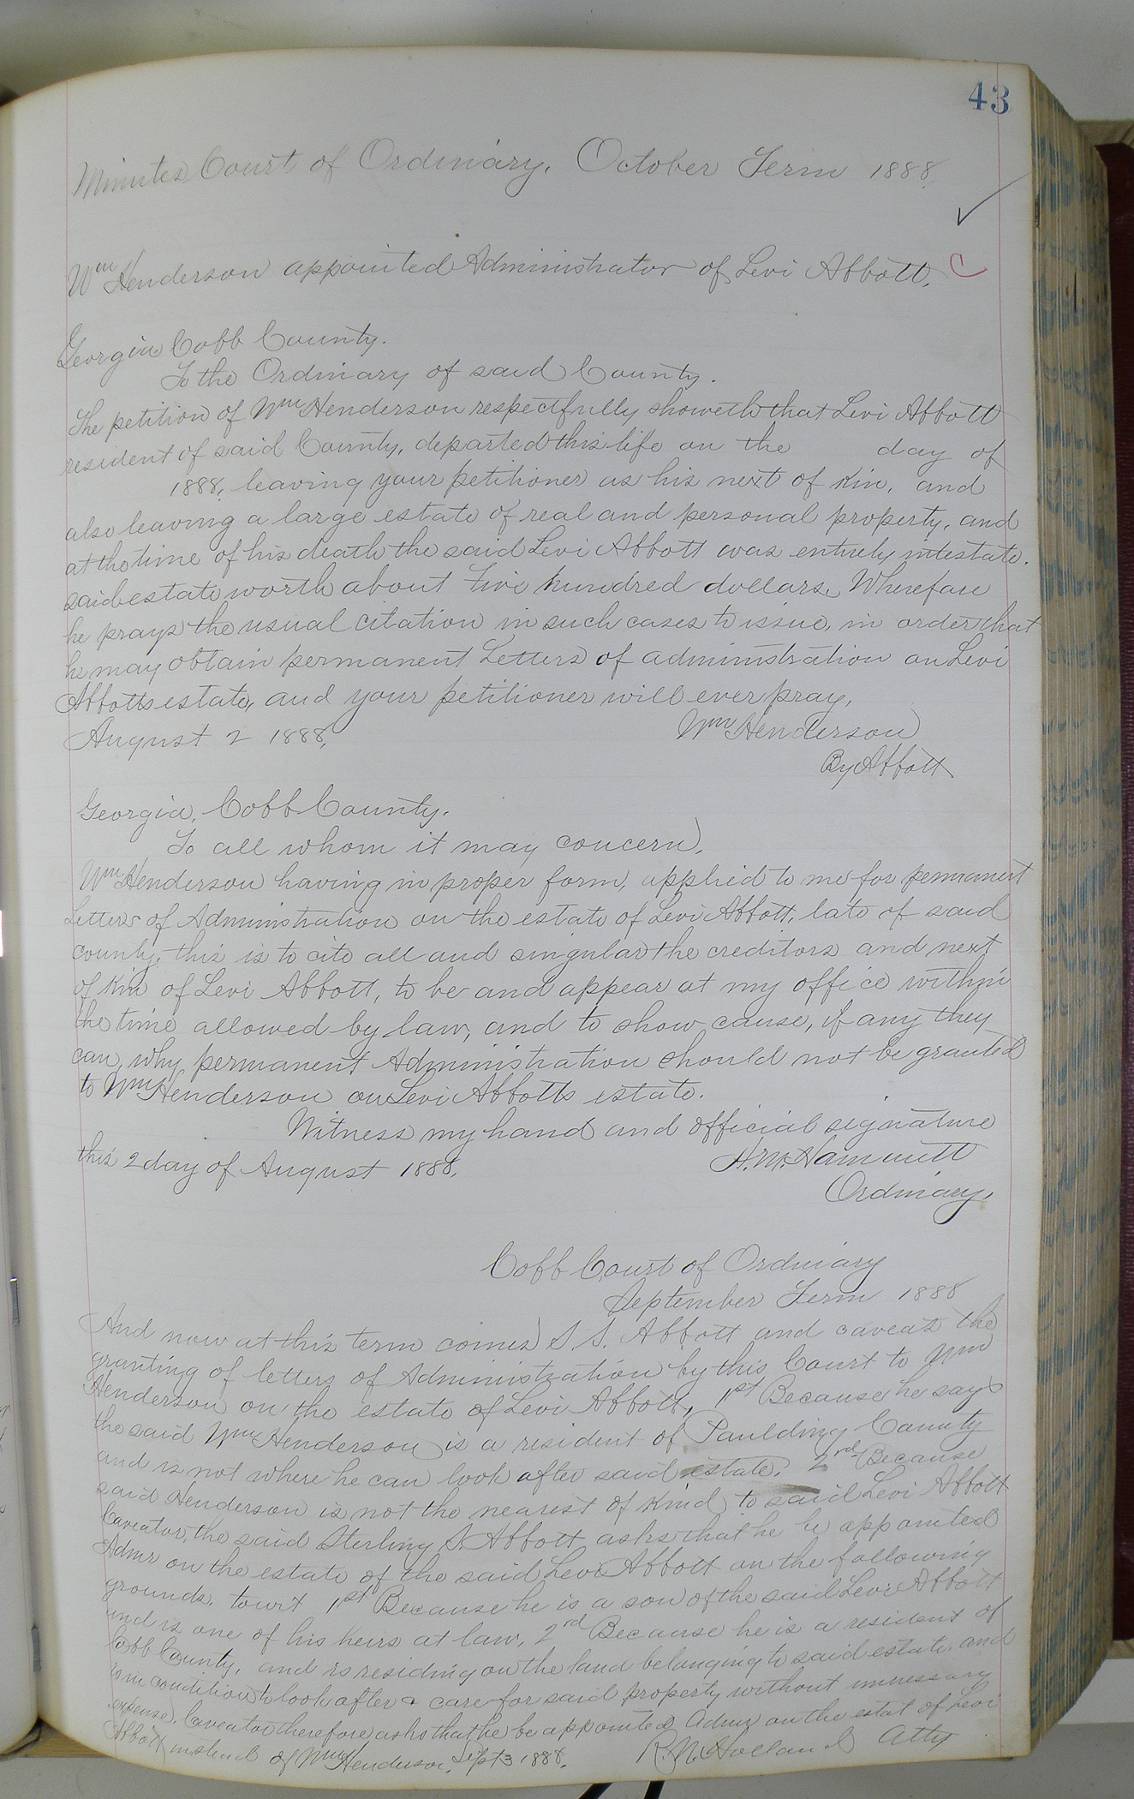 43
Minutes Court of Ordinary, October Term 1888.
Wm Henderson appointed Administrator of Levi Abbott.
Georgia Cobb County.
To the Ordinary of said County.
The petition of Wm Henderson respectfully showeth that Levi Abbott
resident of said County, departed this life on the day of
1888, leaving your petitioner as his next of kin, and
also leaving a large estate of real and personal property, and
at the time of his death the said Levi Abbott was entirely intestate.
said estate worth about Five hundred dollars, Wherefore
he prays the usual citation in such cases to issue, in order that
he may obtain permanent Letters of administration on Levi
Abbotts estate, and your petitioner will ever pray,
August 2 1888, Wm Henderson
By Abbott
Georgia, Cobb County.
To all whom it may concern,
Wm Henderson having in proper form, applied to me for permanent
Letters of Administration on the estate of Levi Abbott, late of said
county, this is to cite all and singular the creditors and next
of Kin of Levi Abbott, to be and appear at my office within
the time allowed by law, and to show cause, if any they
can, why permanent Administration should not be granted
to Wm Henderson on Levi Abbotts estate.
Witness my hand and official signature
this 2 day of August 1888. H. M. Hammett
Ordinary.
Cobb Court of Ordinary
September Term 1888
And now at this term comes S. S. Abbott and caveats the
granting of letters of Administration by this Court to Wm
Henderson on the estate of Levi Abbott, 1st Because he says
the said Wm Henderson is a resident of Paulding County
and is not where he can look after said estate. 2nd Because
said Henderson is not the nearest of Kind to said Levi Abbott
Caveator, the said Sterling S. Abbott asks that he be appointed
Admr on the estate of the said Levi Abbott on the following
grounds, towit 1st Because he is a son of the said Levi Abbott
and is one of his heirs at law, 2nd Because he is a resident of
Cobb County, and is residing on the land belonging to said estate and
in condition to look after & care for said property without
expense. Caveator therefore asks that he be appointed Admr on the estat of Levi
Abbott instead of Wm Henderson, Sept 3 1888. R. N. Holland Atty